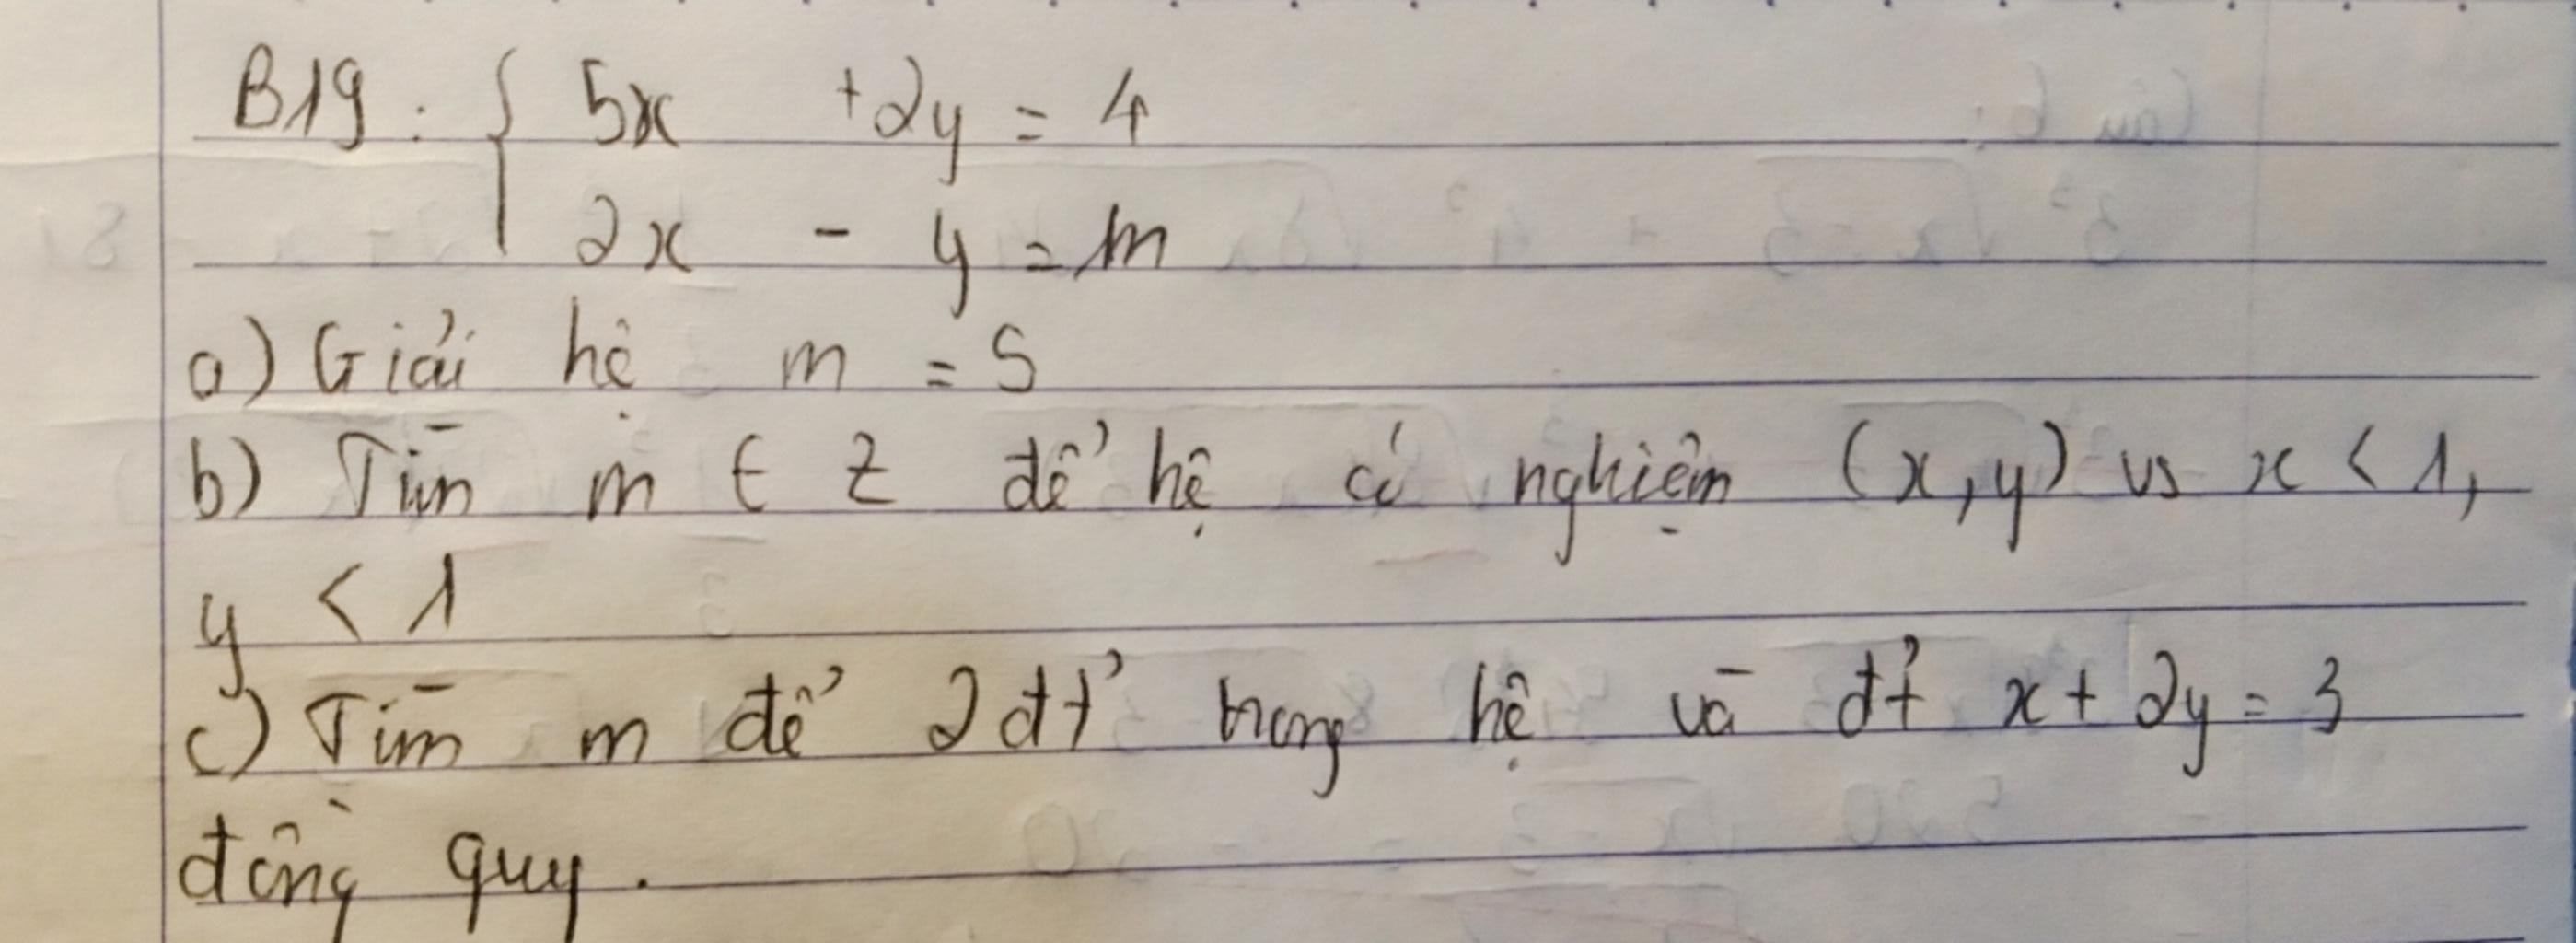 B19: { 5x + 2y = 4
2x - y = m
a) Giải hệ m = 5
b) Tìm m ∈ Z để hệ có nghiệm (x,y) vs x < 1,
y < 1
c) Tìm m để 2 đt trong hệ và đt x + 2y = 3
đồng quy.